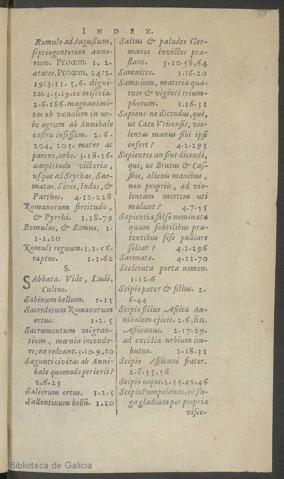 INDEX.
Romulo ad Augustum,
septingentorum anno-
rum. Prooem. 1. 2.
ætates. Prooem. 24.2.
19:3.11.5,6. digni-
tas.1.5.19.ex miseria.
2.6.186.magnanimi-
tas ob venalem in ur-
be agrum ab Annibale
castris insessum. 2.6.
204, 205. mater ac
parens,urbs.3.18.16.
amplitudo victoria,
usque ad Scythas, Sar-
matas, Seres, Indos, &
Parthos. 4.12.228
Romanorum fortitudo,
& Pyrrhi. 1.18.79
Romulus, & Remus. 1.
1-2,20
Romuli regnum.1.1.56.
raptus. 1.1.62
S.
SAbbata. Vide, Ludi,
Cultus.
Sabinum bellum. 1.15
Sacerdotum Romanorum
ortus. 1.2.5
Sacramentum migran-
tium, mœnia incende-
re,ne redeant.3.10.9,10
Sagunti civitas ab Anni-
bale quomodo perierit?
2.6.23
Saliorum ortus. 1.2.5
Sallentinum bellũ. 1.20
Saltus & paludes Ger-
manos invictos præ-
stant. 3.10.58,64
Samnites. 1.16.20
Samnium, materia qua-
tuor & viginti trium-
phorum. 1.16.31
Sapiens ne dicendus, qui,
ut Cato Vticensis, vio-
lentas manus sibi ipsi
infert? 4.2.293
Sapientes an sint dicendi,
qui, ut Brutus & Cas-
sius, alienis manibus,
non propriis, ad vio-
lentam mortem uti
malunt? 4.7.55
Sapientia falso nominata
quam subtilibus præ-
tentibus sese palliare
soleat? 4.2.296
Sarmatæ. 4.12.70
Scelerata porta nomen.
1.12.6
Scipio pater & filius. 2.
6.44
Scipio filius Africa An-
nibalem ejicit.2.6,fin.
Africanus. 2.17.29.
ad excidia urbium im-
butus. 2.18.31
Scipio Africani frater.
2.8.55,56
Scipio nepos.2.15.42.46
Scipio Pompeianus, in fu-
ga gladium per propria
visce-
Biblioteca de Galicia